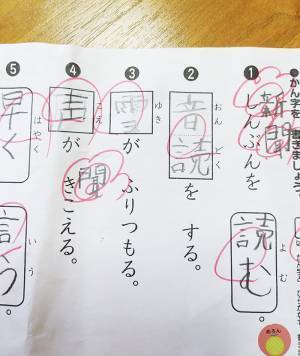 かん字を
ぎましょう。
❶ しんぶんを 読む。
新聞
よ む
❷ 音読を する。
おん どく
❸ 雪が ふりつもる。
ゆき
❹ 声が きこえる。
こえ
聞
❺ 早く 言う。
はやく
いう
めろん